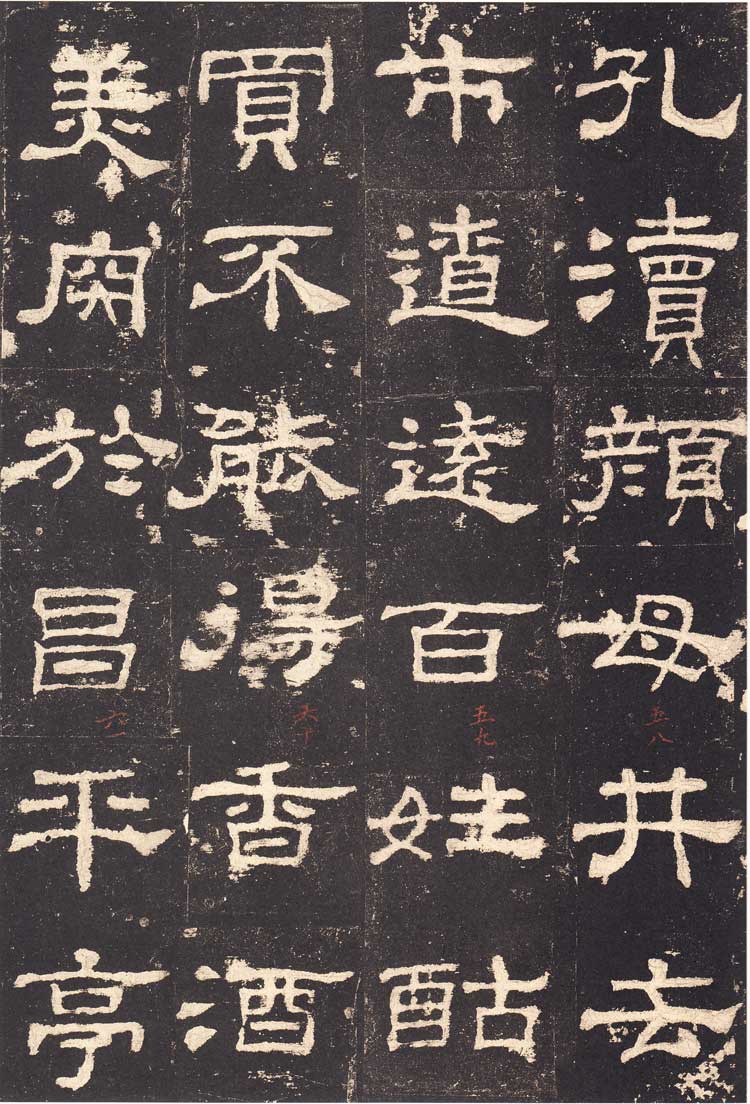 孔瀆顏母井去
五八
市遼遠百姓酤
五九
買不能得香酒
六十
美肉於昌平亭
六一